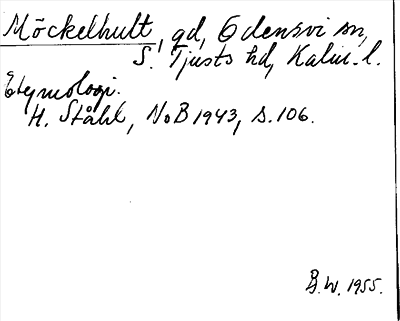 Möckelhult, gd, Odensvi sn,
S. Tjusts hd, Kalm. l.
Etymologi.
H. Ståhl, NoB 1943, s. 106.
B.W. 1955.